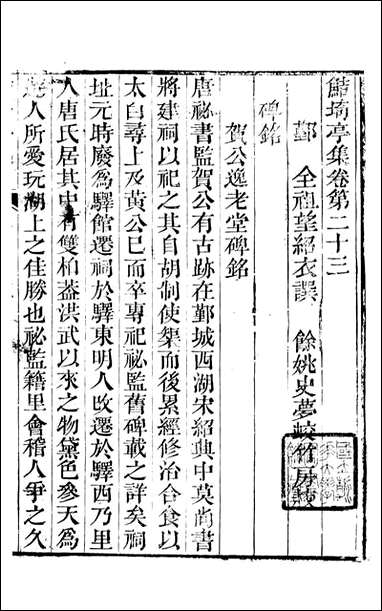 鮚埼亭集卷第二十三
鄞　全祖望紹衣譔　餘姚史夢蛟竹房
碑銘
賀公逸老堂碑銘
唐祕書監賀公有古跡在鄞城西湖宋紹興中莫尚書
將建祠以祀之其自胡制使榘而後累經修治合食以
太白尋上及黃公已而卒專祀祕監舊碑載之詳矣祠
址元時廢爲驛館遷祠於驛東明人改遷於驛西乃里
人唐氏居其中有雙柏蓋洪武以來之物黛色參天爲
人所愛玩湖上之佳勝也祕監籍里會稽人爭之久